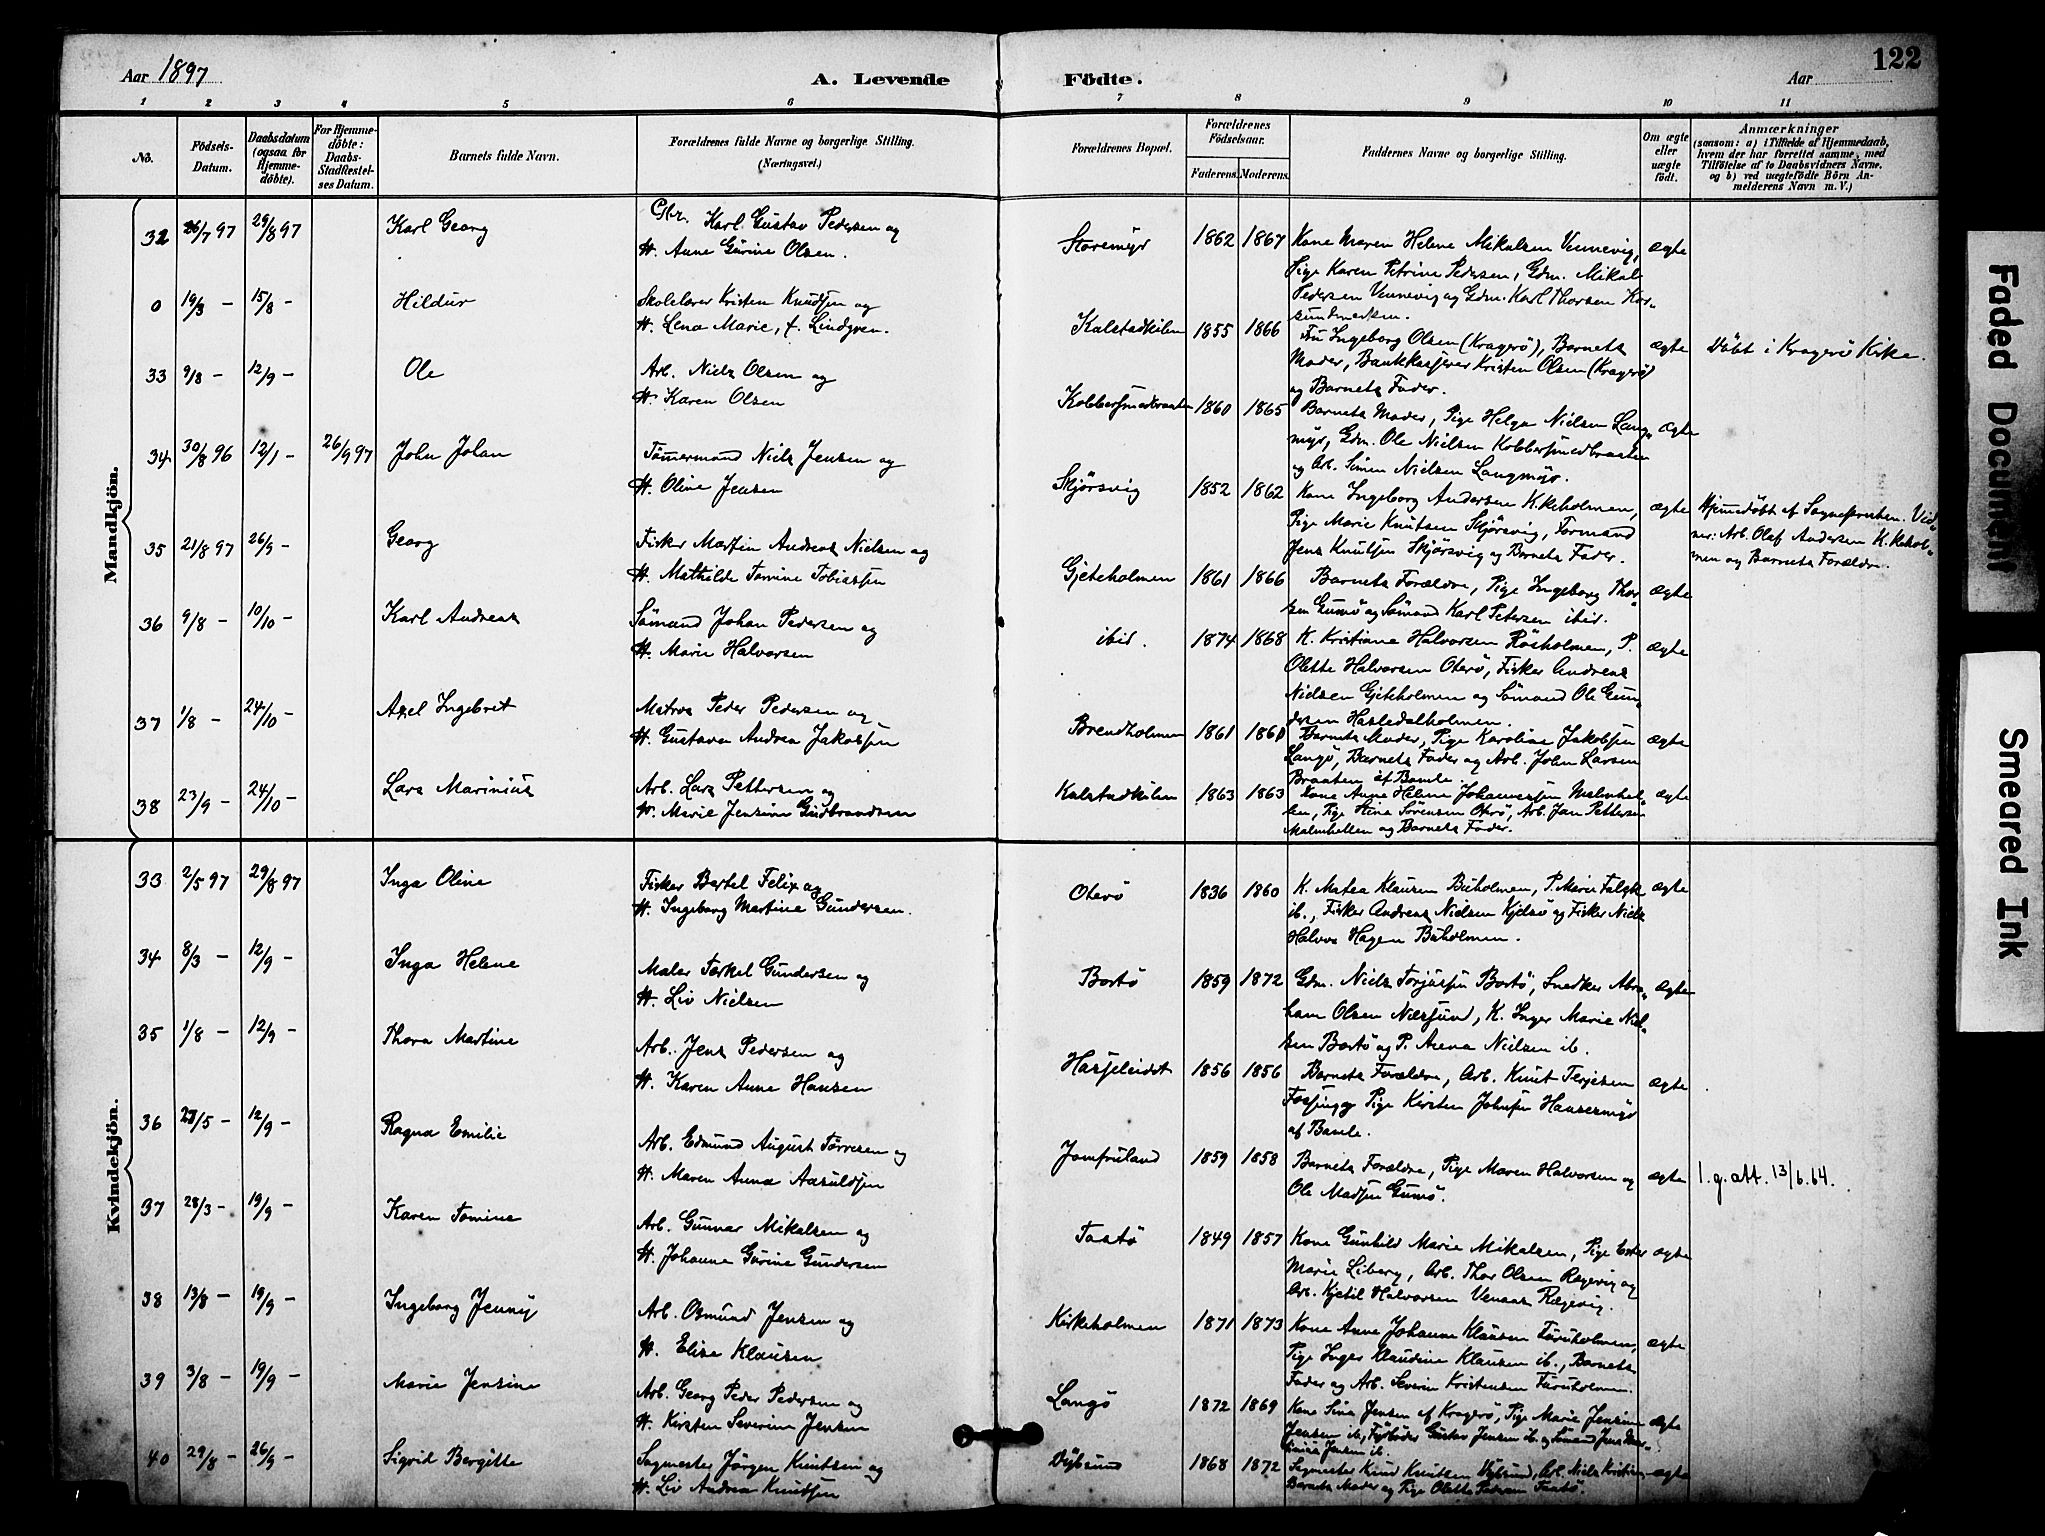 122
Aar 1897
A. Levende Födte.
Aar
1 2 3 4 5 6 7 8 9 10 11
No.
Födsels-Datum.
Daabsdatum (ogsaa for Hjemme-döbte).
For Hjemme-döbte: Daabs-Stadfæstel-ses Datum.
Barnets fulde Navn.
Forældrenes fulde Navne og borgerlige Stilling. (Næringsvei.)
Forældrenes Bopæl.
Forældrenes Födselsaar.
Faderens. Moderens.
Faddernes Navne og borgerlige Stilling.
Om ægte eller uægte födt.
Anmærkninger
(saasom: a) i Tilfælde af Hjemmedaab, hvem der har forrettet samme, med Tilföielse af to Daabsvidners Navne. og b) ved uægtefödte Börn An-melderens Navn m. V.)
Mandkjön.
32 26/7 97 29/8 97 Karl Georg
Gbr. Karl Gustav Pedersen og
H. Anne Gurine Olsen.
Storemyr 1862 1867
Kone Maren Helene Mikalsen Vennevig,
Pige Karen Petrine Pedersen, Gdm. Mikal
Pedersen Vennevig og Gdm. Karl Thorsen
ægte
0 19/3 – 15/8 – Hildur
Skolelærer Kristen Knudsen og
H. Lena Marie, f. Lindgren.
Kalstadkilen 1855 1866
Fru Ingeborg Olsen (Kragerö), Barnets
Moder, Bankkasserer Kristen Olsen (Kragerö)
og Barnets Fader.
ægte Döbt i Kragerö Kirke.
33 9/8 – 12/9 – Ole
Arb. Niels Olsen og
H. Karen Olsen
Kobbersmedbraaten 1860 1865
Barnets Moder, Pige Helga Nielsen Lang-
myr, Gdm. Ole Nielsen Kobbersmedbraaten
og Arb. Simen Nielsen Langmyr.
ægte
34 30/8 96 12/1 – 26/9 97 John Johan
Tömmermand Niels Jensen og
H. Oline Jensen
Skjörsvig 1852 1862
Kone Ingeborg Andersen K.keholmen,
Pige Marie Knutsen Skjörsvig, Formand
Jens Knutsen Skjörsvig og Barnets Fader.
ægte Hjemmedöbt af Sognepresten. Vid-
ner: Arb. Olaf Andersen K.kehol-
men og Barnets Forældre.
35 21/8 97 26/9 – Georg
Fisker Martin Andreas Nielsen og
H. Mathilde Tomine Tobiassen
Gjeteholmen 1861 1866
Barnets Forældre, Pige Ingeborg Thor-
sen Gumö og Sömand Karl Petersen ibid.
ægte
36 9/8 – 10/10 – Karl Andreas
Sömand Johan Pedersen og
H. Marie Halvorsen
ibid. 1874 1868
K. Kristiane Halvorsen Rösholmen, P.
Olette Halvorsen Oterö, Fisker Andreas
Nielsen Gjeteholmen og Sömand Ole Gun-
dersen Hasledalholmen.
ægte
37 1/8 – 24/10 – Axel Ingebret
Matros Peder Pedersen og
H. Gustava Andrea Jakobsen
Brendholmen 1861 1861
Barnets Moder, Pige Karoline Jakobsen
Langö, Barnets Fader og Arb. John Larsen
Braaten af Bamle.
ægte
38 23/9 – 24/10 – Lars Marinius
Arb. Lars Pettersen og
H. Marie Jensine Gudbrandsen
Kalstadkilen 1863 1863
Kone Anne Helene Johannessen Malmhel-
len, Pige Stina Sörensen Oterö, Arb. Jan Pettersen
Malmhellen og Barnets Fader.
ægte
Kvindekjön.
33 2/5 97 29/8 97 Inga Oline
Fisker Bertel Felix og
H. Ingeborg Martine Gundersen.
Oterö 1836 1860
K. Matea Klausen Buholmen, P. Marie Falgk
ib., Fisker Andreas Nielsen Kjelsö og Fisker Niels
Halvor Hagen Buholmen.
ægte
34 8/3 – 12/9 – Inga Helene
Maler Terkel Gundersen og
H. Liv Nielsen
Bortö 1859 1872
Gdm. Niels Torjussen Bortö, Snedker Abra-
ham Olsen Næsjund, K. Inger Marie Niel-
sen Bortö og P. Anna Nielsen ib.
ægte
35 1/8 – 12/9 – Thora Martine
Arb. Jens Pedersen og
H. Karen Anne Hansen
1856 1856
Barnets Forældre, Arb. Knut Terjesen
Fossing og Pige Kirsten Johnsen Hansemyr
af Bamle.
ægte
36 27/5 – 12/9 – Ragna Emilie
Arb. Edmund August Torresen og
H. Maren Anna Aasuldsen
Jomfruland 1859 1858
Barnets Forældre, Pige Maren Halvorsen og
Ole Madsen Gumö.
ægte 1. g. att. 13/6.64.
37 28/3 – 19/9 – Karen Tomine
Arb. Gunnar Mikalsen og
H. Johanne Gurine Gundersen
Taatö 1849 1857
Kone Gunhild Marie Mikalsen, Pige Ester
Marie Liberg, Arb. Thor Olsen Rægevig og
Arb. Kjetil Halvorsen Venaas Rægevig.
ægte
38 13/8 – 19/9 – Ingeborg Jenny
Arb. Osmund Jensen og
H. Elise Klausen
Kirkeholmen 1871 1873
Kone Anne Johanne Klausen Furuholmen,
Pige Inger Klaudine Klausen ib., Barnets
Fader og Arb. Severin Kristensen Furuholmen.
ægte
39 3/8 – 19/9 – Marie Jensine
Arb. Georg Peder Pedersen og
H. Kirsten Severine Jensen
Langö 1872 1869
Kone Sina Jensen af Kragerö, Pige Marie Jensine
Jensen ib., Fyrböder Gustav Jensen ib. og Sömand Jens
Jensen ib.
ægte
40 29/8 – 26/9 – Sigrid Bergitte
Sagmester Jörgen Knutsen og
H. Liv Andrea Knutsen
Dybsund 1868 1872
Sagmester Knud Knutsen Dybsund, Arb. Niels Kristian
Barnets Moder og Pige Olette Pedersen Taatö.
ægte
Faded Document
Smeared Ink